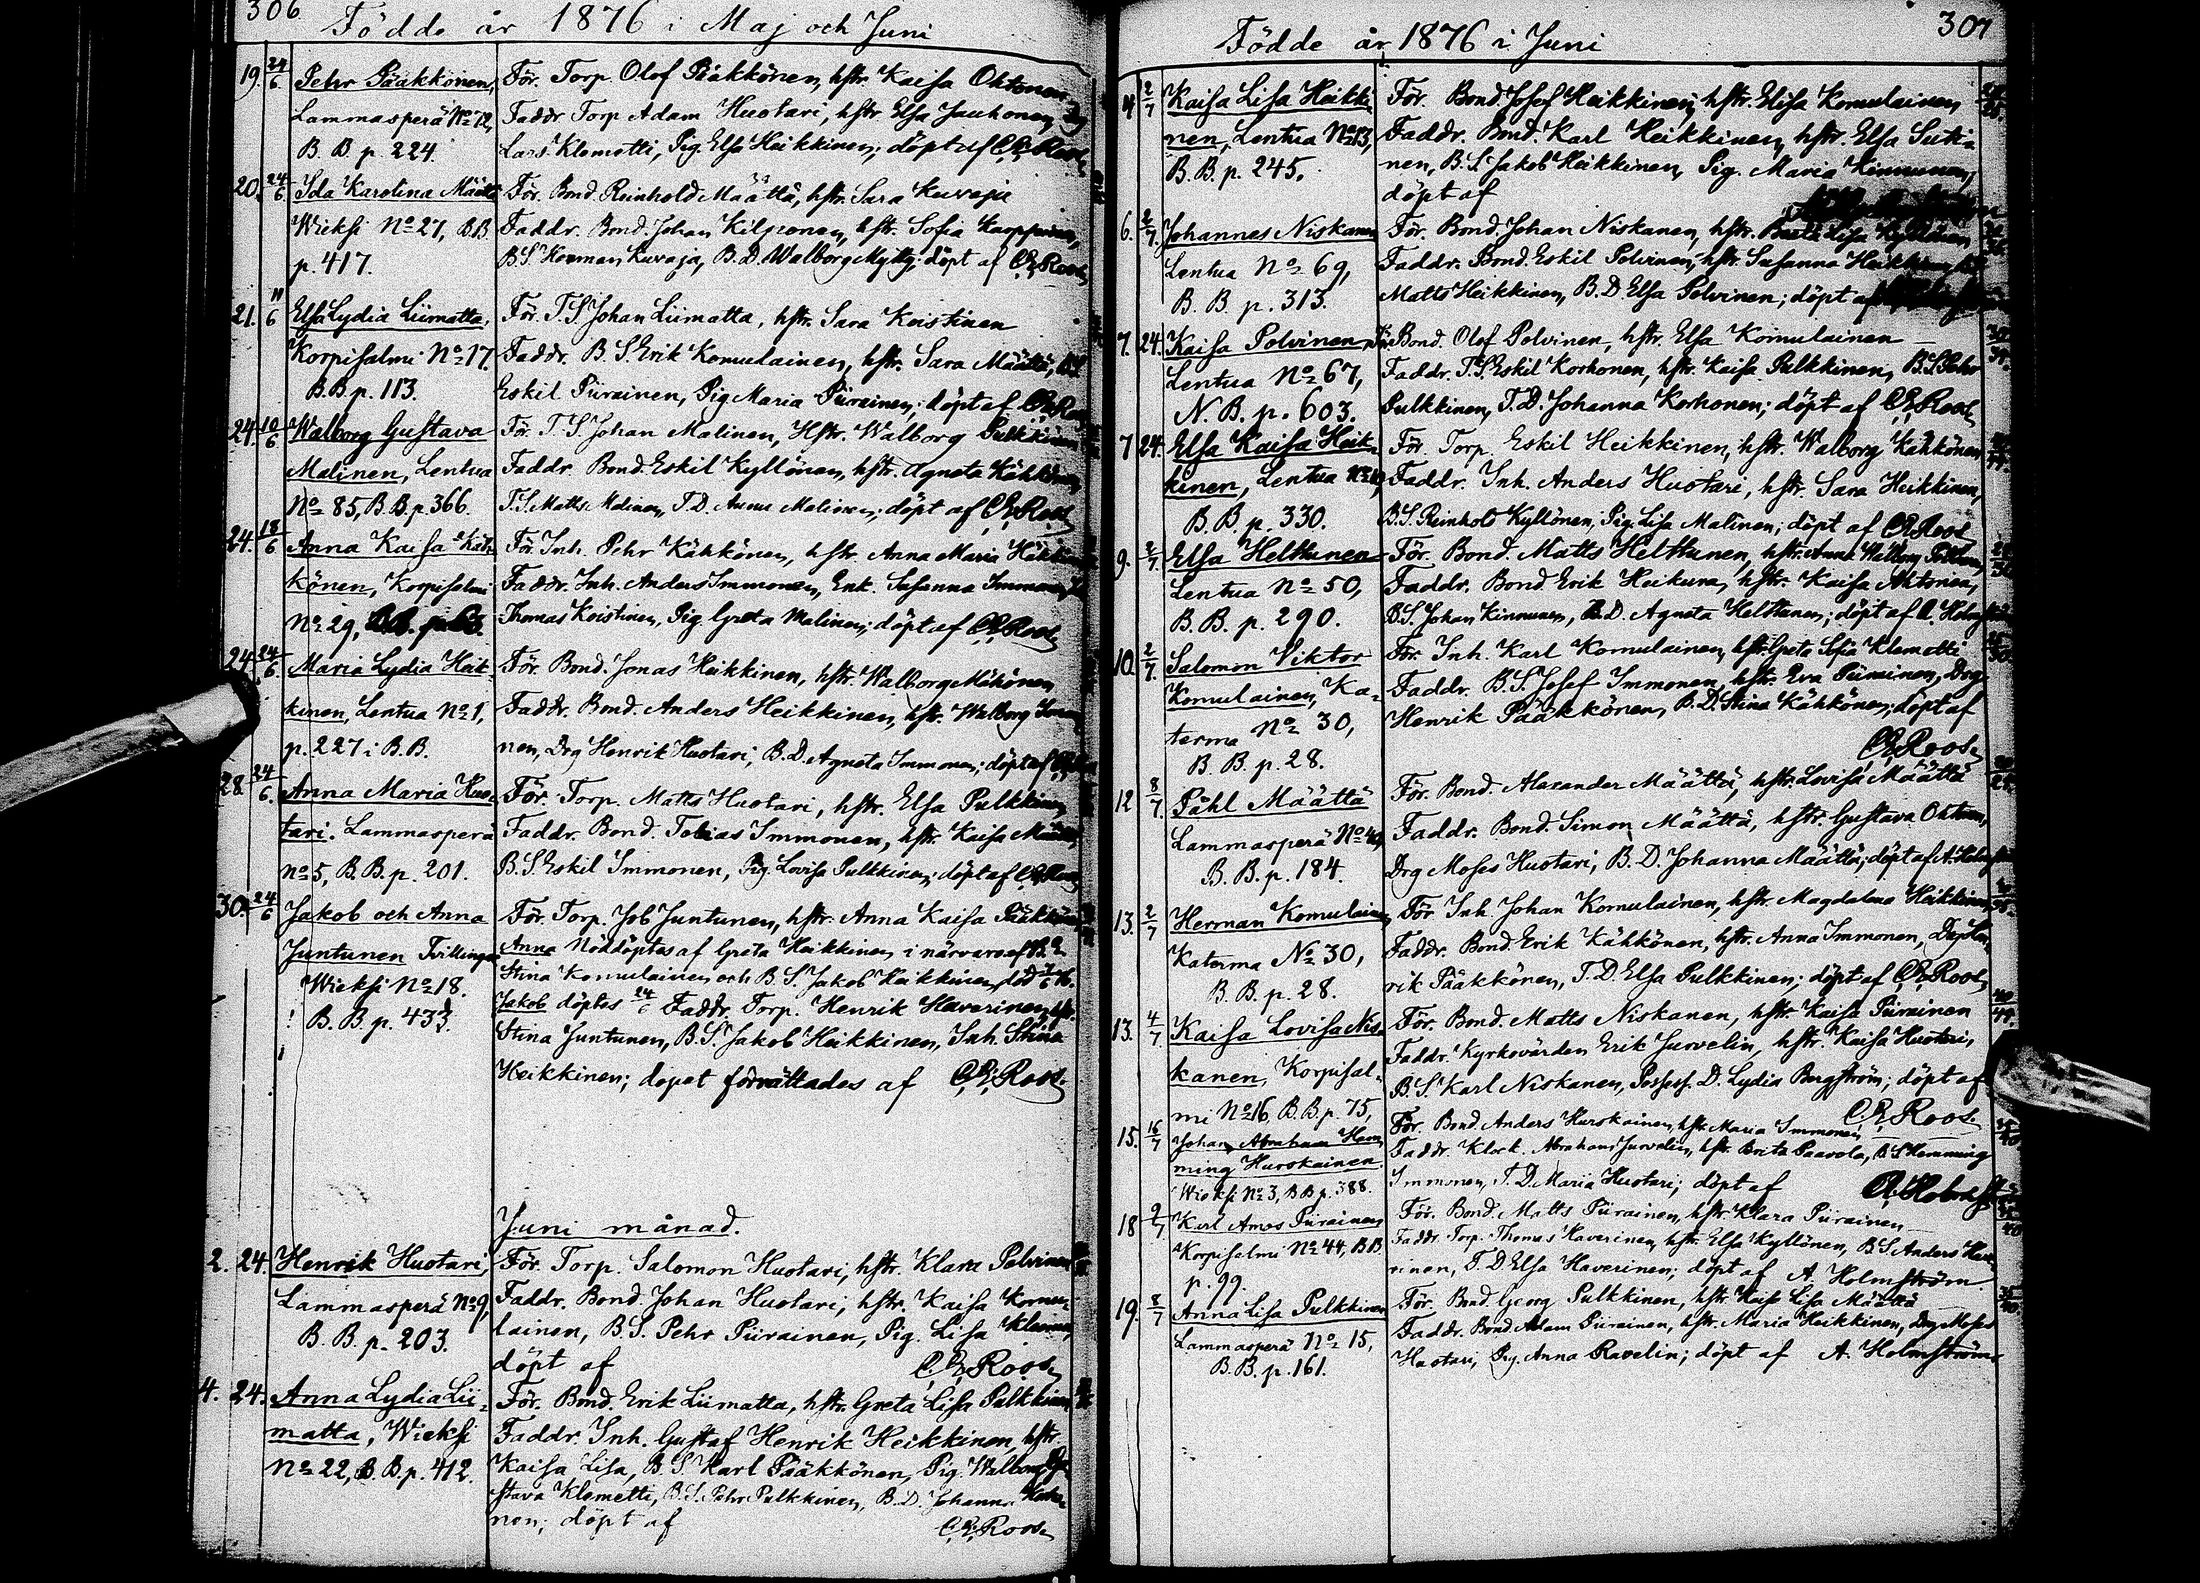 306
Födde år 1876 i Maj och Juni
19. 24/6 Pehr Pääkkönen, För. Torp. Olof Pääkkönen, hstr. Kaisa Ohtonen
Lammasperä No 72, Faddr Torp Adam Huotari, hstr Elsa Jauhonen, Drg
B. B. p. 224. Lars Klemetti, Pig. Elsa Heikkinen; döpt af C.R. Roos
20. 24/6 Ida Karolina Määttä För. Bond. Reinhold Määttä, hstr. Sara Kuvaja
Wieksi No 27, B.B. Faddr. Bond. Johan Kilponen, hstr. Sofia Karppinen,
p. 417. B.S. Herman Kuvaja, B.D. Walborg Mylly; döpt af C.R. Roos
21. 11/6 Elsa Lydia Liimatta, För. T.S. Johan Liimatta, hstr. Sara Koistinen
Korpisalmi No 17. Faddr. B.S. Erik Komulainen, hstr. Sara Määttä, B.S.
B.B. p. 113. Eskil Piirainen, Pig Maria Piirainen; döpt af C.R. Roos
24. 10/6 Walborg Gustava För. T.S Johan Malinen, Hstr. Walborg Pulkkinen
Malinen, Lentua Faddr Bond. Eskil Kyllönen, hstr. Agneta Kähkönen,
No 85, B.B. p. 366. T.S. Matts Malinen, T.D. Anna Malinen; döpt af C.R. Roos
24. 18/6 Anna Kaisa Käh- För. Inh. Pehr Kähkönen, hstr Anna Maria
könen, Korpisalmi Faddr. Inh. Anders Immonen, Enk. Susanna Immonen,
No 29, Thomas Koistinen, Pig. Greta Malinen; döpt af C.R. Roos
24. 24/6 Maria Lydia Heik- För. Bond. Jonas Heikkinen, hstr. Walborg Mökönen
kinen, Lentua No 1, Faddr. Bond. Anders Heikkinen, hstr. Walborg Immo-
p. 227 i B.B. nen, Drg Henrik Huotari, B.D. Agneta Immonen; döpt af
28. 24/6. Anna Maria Huo- För. Torp. Matts Huotari, hstr. Elsa Pulkkinen
tari. Lammasperä Faddr. Bond. Tobias Immonen, hstr. Kaisa
No 5, B.B. p. 201. B.S. Eskil Immonen, Pig. Lovisa Pulkkinen; döpt af C.R. Roos
30. 24/6 Jakob och Anna För. Torp. Job Juntunen, hstr. Anna Kaisa Pääkkönen
Juntunen Tvillingar Anna Nöddöptes af Greta Heikkinen i närvaro af
Wieksi No 18. Stina Komulainen och B.S. Jakob Heikkinen, död
B.B. p. 433. Jakob döptes 24/6 Faddr. Torp. Henrik Haverinen, hstr.
Stina Juntunen, B.S. Jakob Heikkinen, Inh. Stina
Heikkinen; dopet förrättades af C.R. Roos.
Juni månad.
2. 24. Henrik Huotari, För. Torp. Salomon Huotari, hstr. Klara Polvinen
Lammasperä No 9, Faddr. Bond. Johan Huotari, hstr. Kaisa Komu-
B.B. p. 203. lainen, B.S. Pehr Piirainen, Pig. Lisa
döpt af C.R. Roos
4. 24. Anna Lydia Lii- För. Bond. Erik Liimatta, hstr. Greta Lisa Pulkkinen
matta, Wieksi Faddr. Inh. Gustaf Henrik Heikkinen, hstr.
No 22, B.B. p. 412. Kaisa Lisa, B.S. Karl Pääkkönen, Pig. Walborg Gu-
stava Klemetti, B.S. Pehr Pulkkinen, B.D. Johanna
nen; döpt af C.R. Roos
307
Födde år 1876 i Juni
4 2/7 Kaisa Lisa Heikki- För. Bond. Josef Heikkinen, hstr. Elisa Komulainen
nen, Lentua No 13, Faddr. Bond. Karl Heikkinen, hstr. Elsa Suiki-
B.B. p. 245. nen, B.S. Jakob Heikkinen, Pig. Maria Kinnunen,
döpt af
6. 2/7. Johannes Niskanen För. Bond. Johan Niskanen, hstr. Lisa Kyllönen
Lentua No 69, Faddr. Bond. Eskil Polvinen, hstr. Susanna Heikkinen,
B.B. p. 313. Matts Heikkinen, B.D. Elsa Polvinen; döpt af
7. 24. Kaisa Polvinen, För. Bond. Olof Polvinen, hstr. Elsa Komulainen
Lentua No 67, Faddr. T.S. Eskil Korhonen, hstr. Kaisa Pulkkinen, B.S. Pehr
N.B. p. 603. Pulkkinen, T.D. Johanna Korhonen; döpt af C.R. Roos
7 24. Elsa Kaisa Heik- För. Torp. Eskil Heikkinen, hstr. Walborg Kähkönen
kinen, Lentua Faddr. Inh. Anders Huotari, hstr. Sara Heikkinen,
B.B. p. 330. B.S. Reinhold Kyllönen, Pig. Lisa Malinen; döpt af C.R. Roos
9. 2/7 Elsa Helttunen För. Bond. Matts Helttunen, hstr. Anna Walborg
Lentua No 50, Faddr. Bond. Erik Heikura, hstr. Kaisa Ahtonen,
B.B. p. 290. B.S. Johan Kinnunen, B.D. Agneta Helttunen; döpt af A. Holmström
10. 2/7. Salomon Viktor För. Inh. Karl Komulainen, hstr. Greta Sofia Klemetti
Komulainen, Ka- Faddr. B.S. Josef Immonen, hstr. Eva Piirainen, Drg
terma No 30, Henrik Pääkkönen, B.D. Stina Kähkönen; döpt af
B.B. p. 28. C.R. Roos
12 8/7 Påhl Määttä För. Bond. Alexander Määttä, hstr. Lovisa Määttä
Lammasperä No Faddr. Bond. Simon Määttä, hstr. Gustava Ohtonen,
B.B. p. 184. Drg Moses Huotari, B.D. Johanna Määttä; döpt af A. Holmström
13. 2/7 Herman Komulainen För. Inh. Johan Komulainen, hstr. Magdalena Heikkinen
Katerma No 30, Faddr. Bond. Erik Kähkönen, hstr. Anna Immonen, Drg Hen-
B.B. p. 28. rik Pääkkönen, T.D. Elsa Pulkkinen; döpt af C.R. Roos
13. 4/7 Kaisa Lovisa Nis- För. Bond. Matts Niskanen, hstr. Kaisa Piirainen
kanen, Korpisal- Faddr. Kyrkovärden Erik Jurvelin, hstr. Kaisa Huotari,
mi No 16, B.B. p. 75, B.S. Karl Niskanen, Possess. D. Lydia Bergström; döpt af
C.R. Roos.
15. 16/7 Johan Abraham Hem- För. Bond Anders Hurskainen, hstr. Maria Immonen
ming Hurskainen Faddr. Klock. Abraham Jurvelin, hstr. Brita Paavola, B.S Hemming
Wieksi No 3, B.B. p. 388. Immonen, T.D. Maria Huotari; döpt af A. Holmstr.
18 9/7 Karl Amos Piirainen För. Bond. Matts Piirainen, hstr. Klara Piirainen
Korpisalmi No 44, B.B. Faddr. Torp. Thomas Haverinen, hstr. Elsa Kyllönen, B.S. Anders Have-
p. 99. rinen, T.D. Elsa Haverinen; döpt af A. Holmström
19. 8/7 Anna Lisa Pulkkinen För. Bond. Georg Pulkkinen, hstr. Kaisa Lisa Määttä
Lammasperä No 15, Faddr. Bond. Adam Piirainen, hstr. Maria Heikkinen, Drg Moses
B.B. p. 161. Huotari, Pig. Anna Ravelin; döpt af A. Holmström